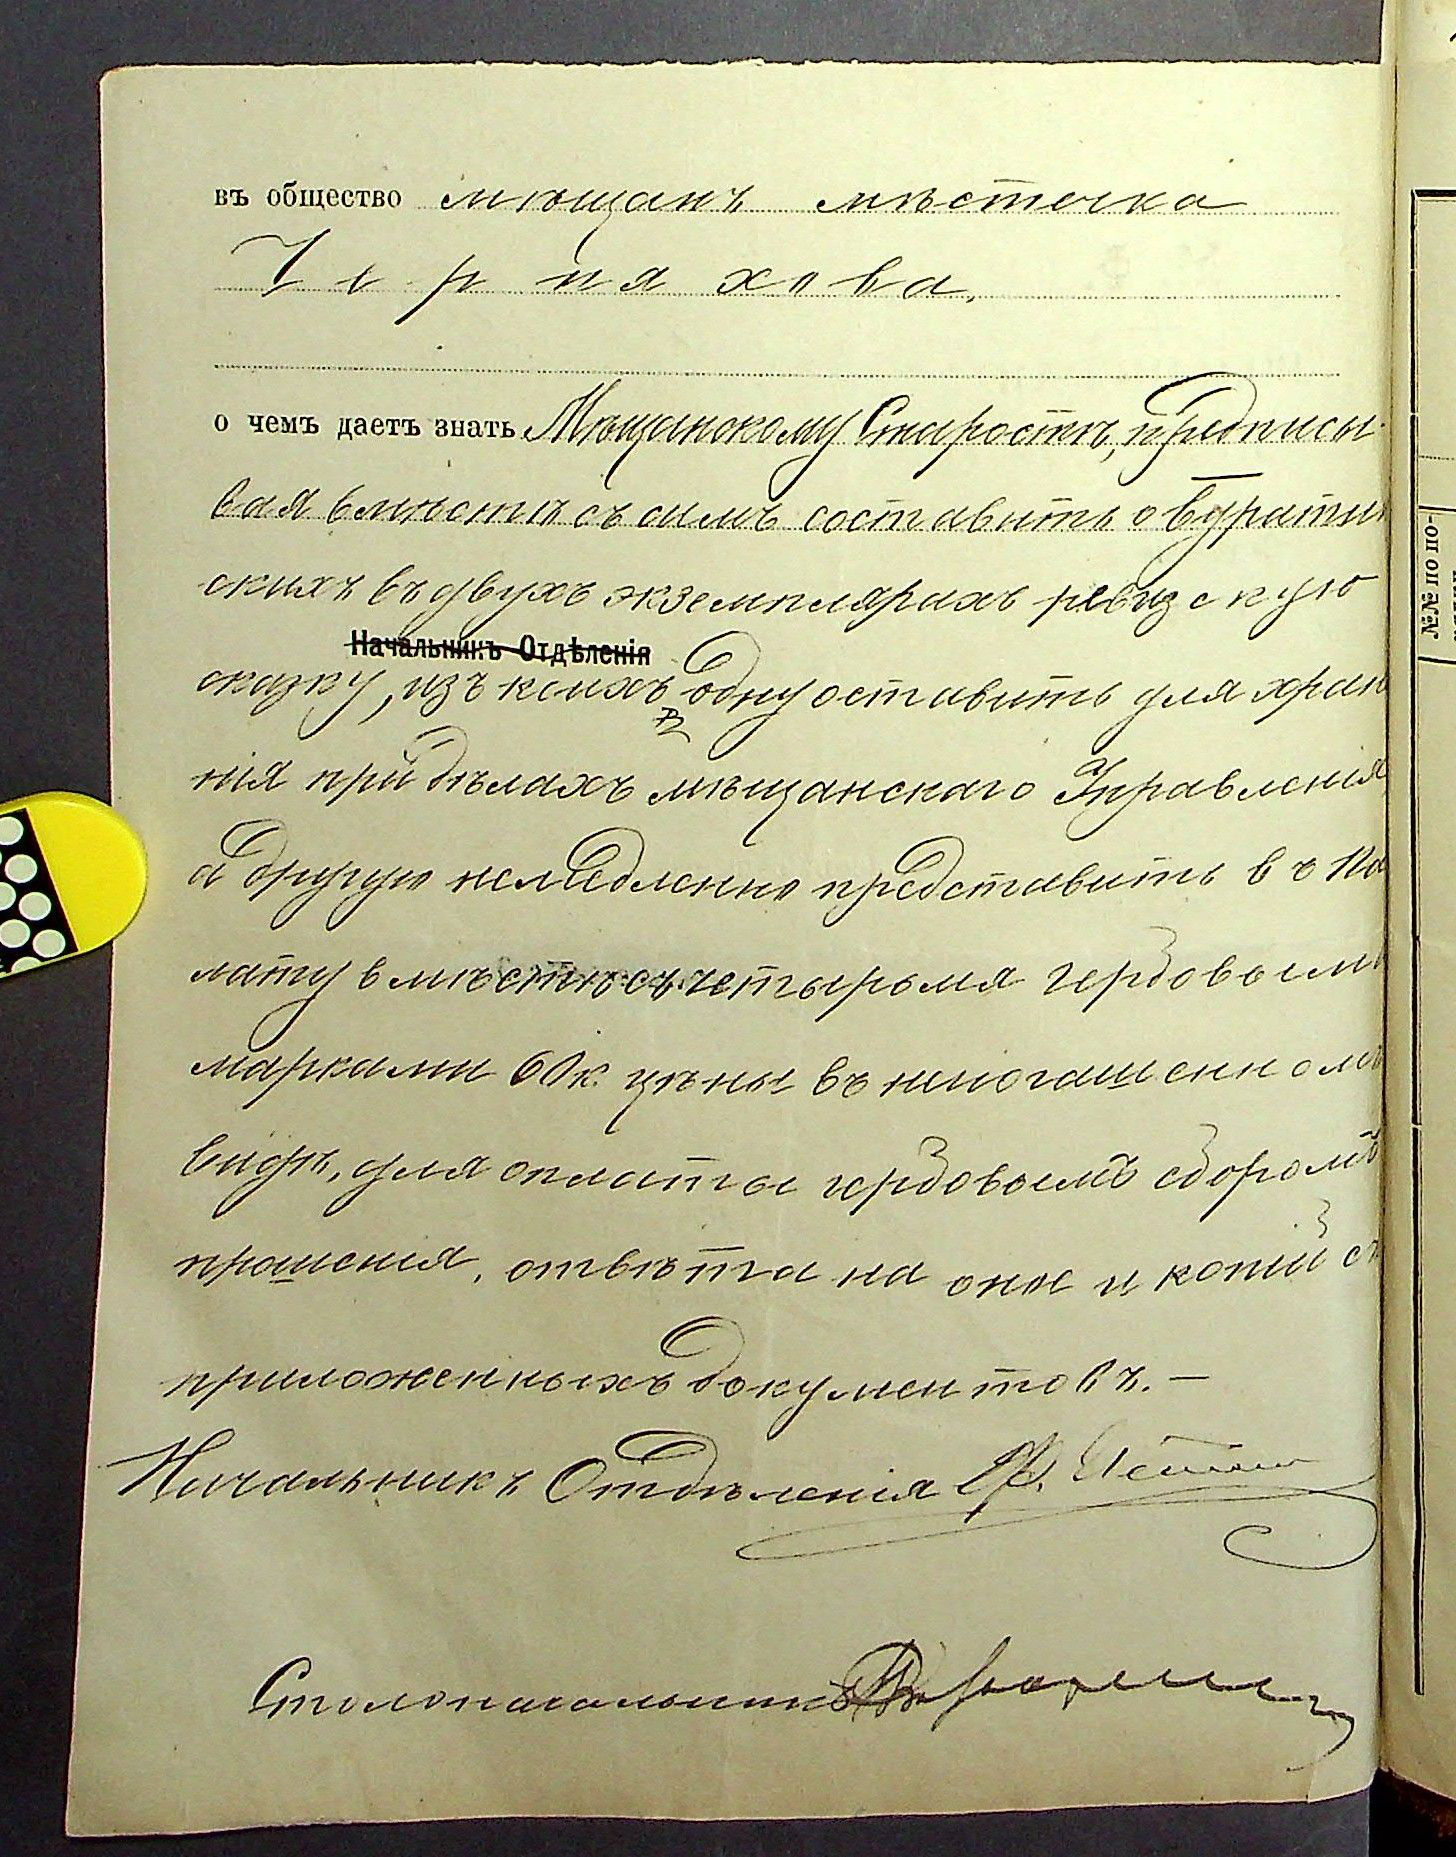 въ общество мѣщанъ мѣстечка
Черняхова.
о чемъ даетъ знать Мѣщанскому Старостѣ, предписы-
вая вмѣстѣ съ симъ составить о
скихъ въ двухъ экземплярахъ ревизскую
Начальникъ Отдѣленія
сказку, изъ коихъ одну оставить для хране
нія при дѣлахъ мѣщанскаго Управленія,
а другую немедленно представить въ Па
лату вмѣстѣ съ четырьмя гербовыми
марками 60 к. цѣны въ непогашенномъ
видѣ, для оплаты гербовымъ сборомъ
прошенія, отвѣта на оное и копій съ
приложенныхъ документовъ. —
Начальникъ Отдѣленія
Столоначальникъ
№№ по по-